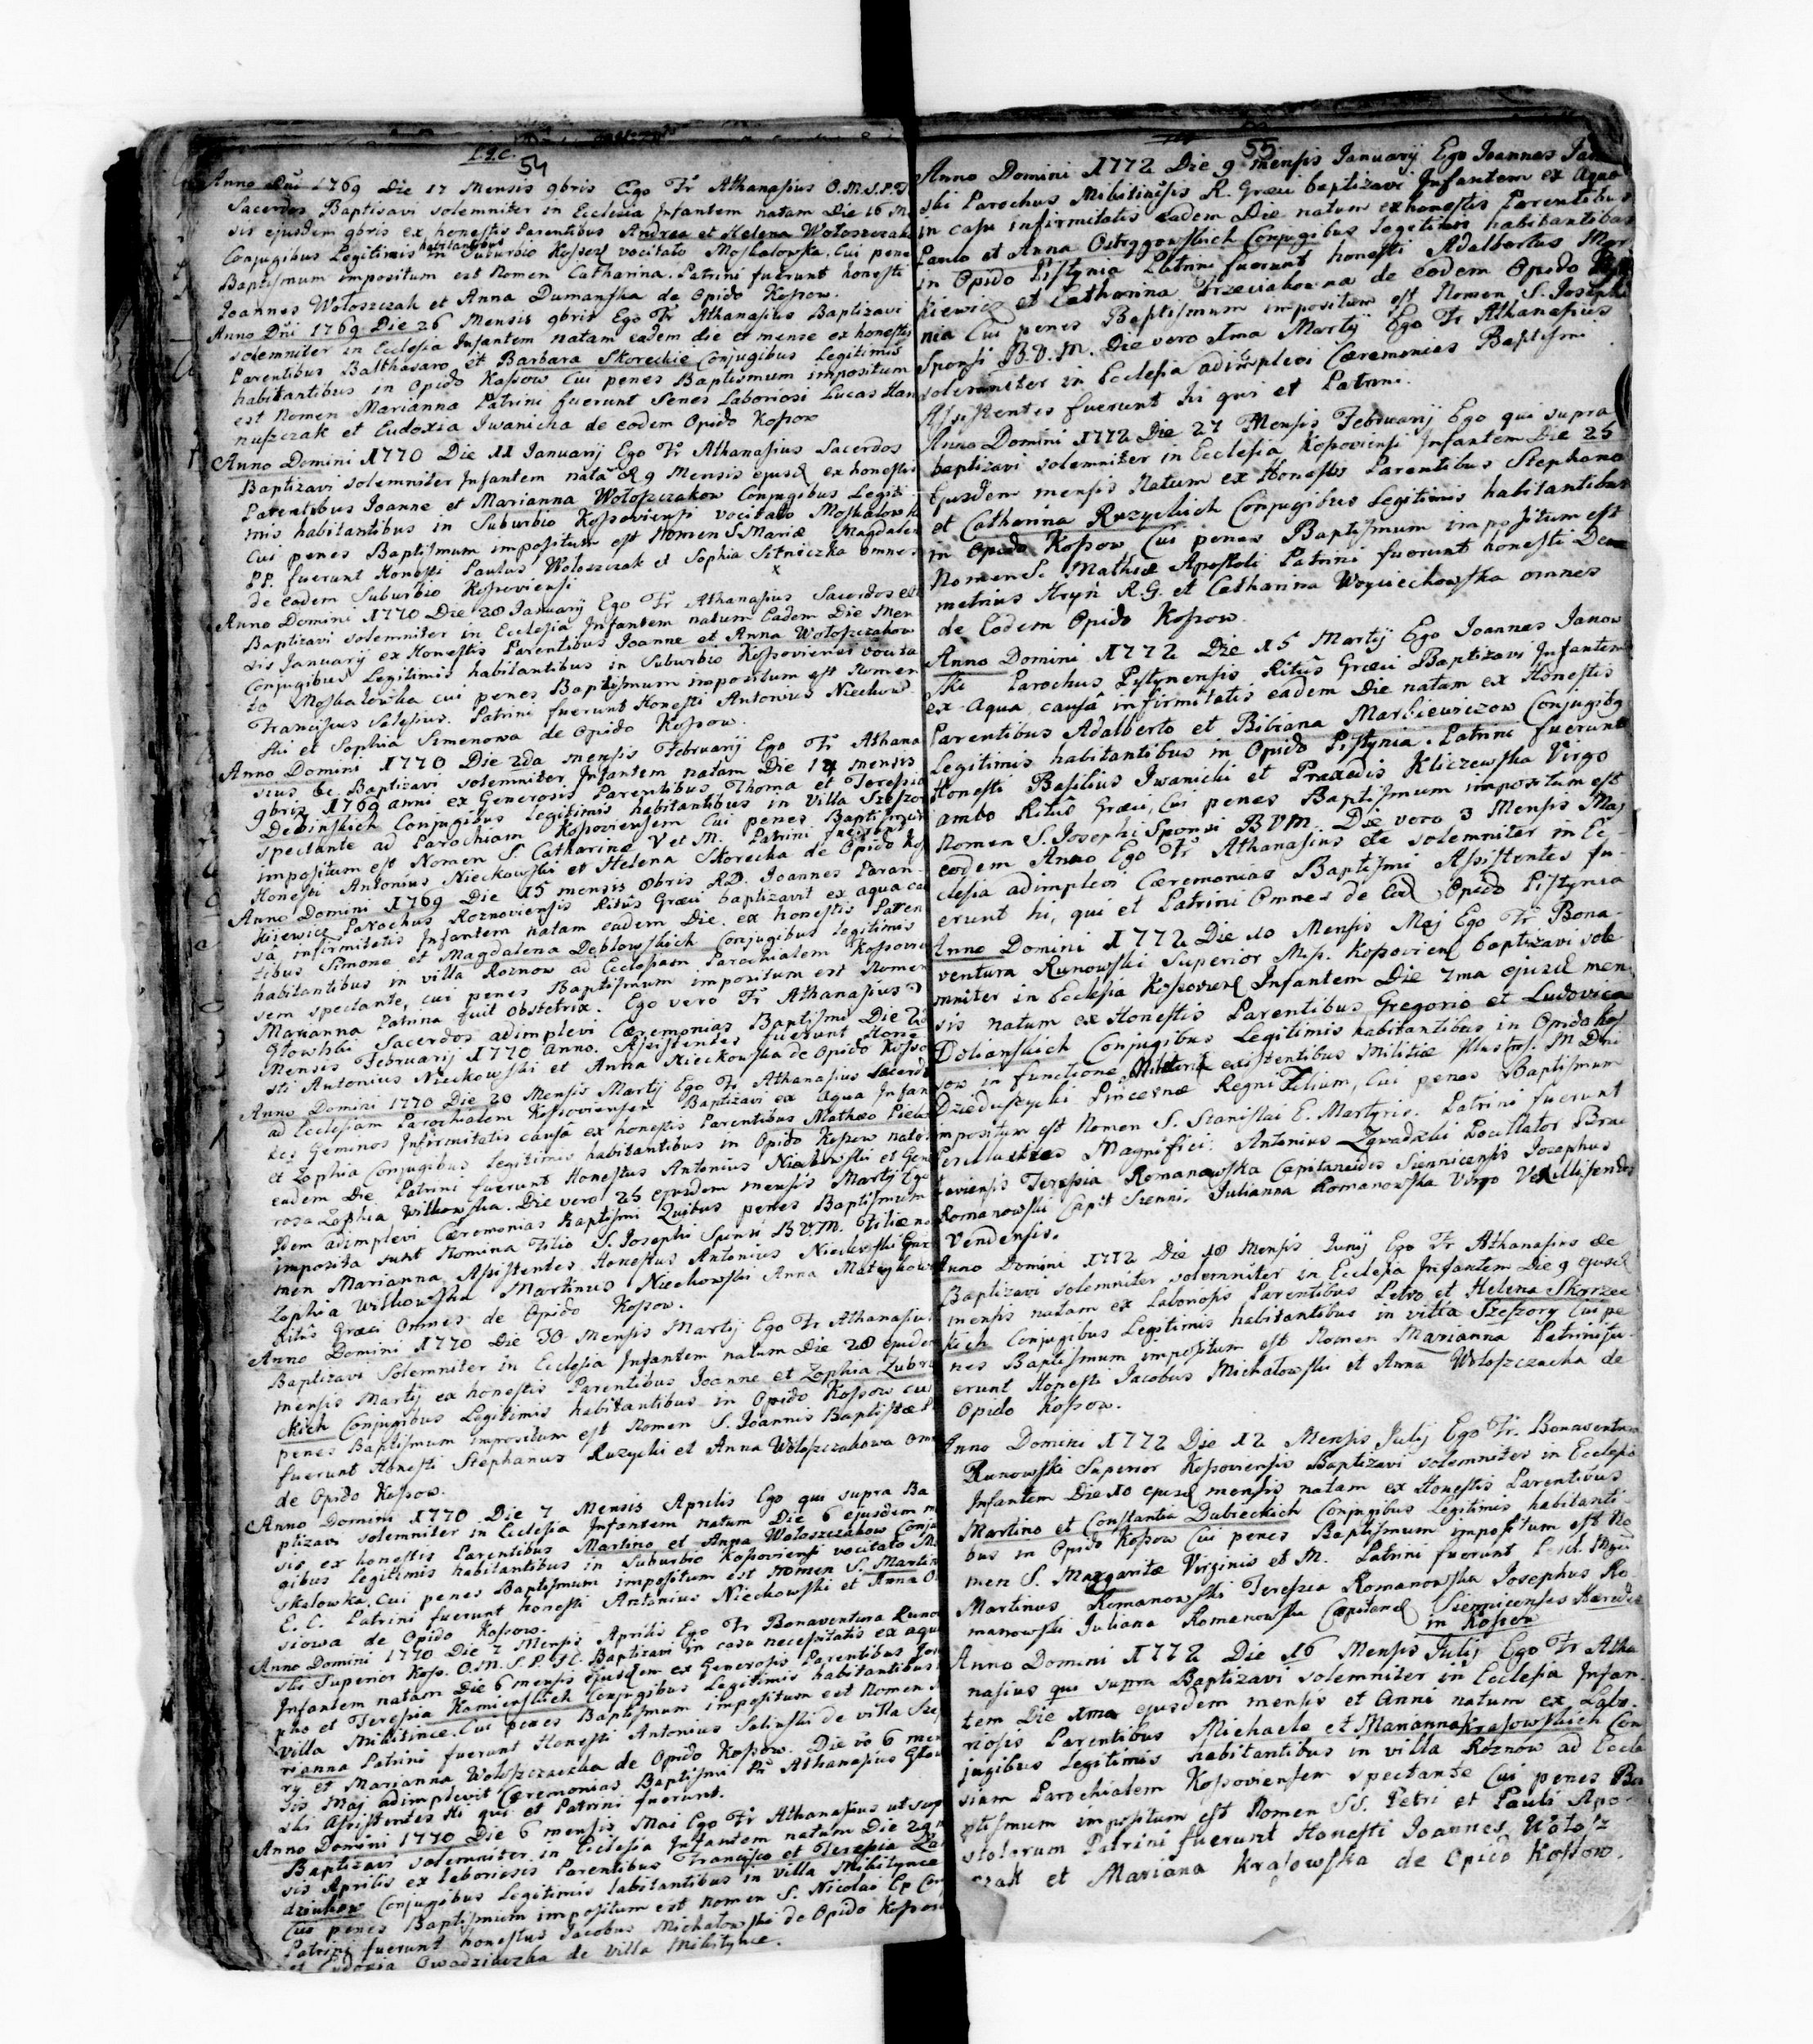 54
Anno Dni 1769 Die 17 Mensis 9bris Ego Fr Athanasius O.M.S.P.
Sacerdos Baptisavi solemniter in Ecclesia Infantem natam Die 16 M
sis ejusdem 9bris ex honestis Parentibus Andrea et Helena Wołoszczak
Conjugibus Legitimis habitantibus in Suburbio Kossow vocitato Moskalowka. Cui pene
Baptismum impositum est Nomen Catharina. Patrini fuerunt honesti
Joannes Wołoszczak et Anna Dumanska de Opido Kossow.
Anno Dni 1769 Die 26 Mensis 9bris Ego Fr Athanasius Baptizavi
solemniter in Ecclesia Infantem natam eadem die et mense ex honestis
Parentibus Balthasaro et Barbara Skoreckie Conjugibus Legitimis
habitantibus in Opido Kossow Cui penes Baptismum impositum
est Nomen Marianna Patrini fuerunt Senes Laboriosi Lucas Han
nuszczak et Eudoxia Iwanicha de eodem Opido Kossow
Anno Domini 1770 Die 11 Januarij Ego Fr Athanasius Sacerdos
Baptizavi solemniter Infantem natã 9 Mensis ejusd ex honestis
Parentibus Joanne et Marianna Wołoszczakow Conjugibus Legiti
mis habitantibus in Suburbio Kossoviensi vocitato Moskalowk
Cui penes Baptismum impositum est Nomen S Mariæ Magdalen
PP. fuerunt Honesti Paulus Wołoszczak et Sophia Sitniczka omnes
de eadem Suburbio Kossoviensi
Anno Domini 1770 Die 28 Januarij Ego Fr Athanasius Sacerdos
Baptizavi solemniter in Ecclesia Infantem natum Eadem Die Men
sis Januarij ex Honestis Parentibus Joanne et Anna Wołoszczakow
Conjugibus Legitimis habitantibus in Suburbio Kossoviensi vocita
to Moskalowka cui penes Baptismum impositum est Nomen
Franciscus Salesius. Patrini fuerunt Honesti Antonius Nieckow
ski et Sophia Simenowa de Opido Kossow.
Anno Domini 1770 Die 2da mensis Februarij Ego Fr Athana
sius &c Baptizavi solemniter Infantem natam Die 14 mensis
9bris 1769 anni ex Generosis Parentibus Thoma et Teressia
Debinskich Conjugibus Legitimis habitantibus in Villa Szeszor
spectante ad Parochiam Kossoviensem Cui penes Baptismum
impositum est Nomen S. Catharinæ V et M. Patrini fuerunt
Honesti Antonius Nieckowski et Helena Skorecka de Opido Kos
Anno Domini 1769 Die 15 mensis 8bris RD. Joannes Paran-
kijewicz Parochus Roznoviensis Ritus Græci baptizavit ex aqua cau
sa infirmitatis Infantem natam eadem Die. ex honestis Paren
tibus Simone et Magdalena Deblowskich Conjugibus Legitimis
habitantibus in villa Roznow ad Ecclesiam Parochialem Kossovien
sem spectante, cui penes Baptismum impositum est Nomen
Marianna Patrina fuit obstetrix. Ego vero Fr Athanasius
Głowski Sacerdos adimplevi Cæremonias Baptismi Die 2d
Mensis Februarij 1770 anno. Assistentes fuerunt Hone
sti Antonius Nieckowski et Anna Nieckowska de Opido Kosso
Anno Domini 1770 Die 20 Mensis Martij Ego Fr Athanasius Sacerd
ad Ecclesiam Parochialem Kossoviensem Baptizavi ex Aqua Infan
tes Geminos Infirmitatis causâ ex honestis Parentibus Mathæo
et Zophia Conjugibus Legitimis habitantibus in Opido Kossow nato
eadem Die Patrini fuerunt Honestus Antonius Nieckowski et Gene
rosa Zophia Witkowska. Die vero 25 ejusdem mensis Martij Ego
Idem adimplevi Cæremonias Baptismi Quibus penes Baptismum
imposita sunt Nomina Filio S. Josephi Sponsi B.V.M. Filiæ no
men Marianna Assistentes Honestus Antonius Nieckowski
Zophia Witkowska Martinus Nieckowski Anna
Ritûs Græci Omnes de Opido Kossow.
Anno Domini 1770 Die 30 Mensis Martij Ego Fr Athanasius
Baptizavi Solemniter in Ecclesia Infantem natum Die 28 ejusdem
mensis Martij ex honestis Parentibus Joanne et Zophia Zubri
ckich Conjugibus Legitimis habitantibus in Opido Kossow cui
penes Baptismum impositum est Nomen S. Joannis Baptistæ P
fuerunt Honesti Stephanus Ruzycki et Anna Wołoszczakowa om
de Opido Kossow.
Anno Domini 1770 Die 7 Mensis Aprilis Ego qui supra Ba
ptizavi solemniter in Ecclesia Infantem natum Die 6 ejusdem m
sis ex honestis Parentibus Martino et Anna Wołoszczakow Conju
gibus Legitimis habitantibus in Suburbio Kossoviensi vocitato M
skalowka. Cui penes Baptismum impositum est Nomen S. Martin
E. C. Patrini fuerunt honesti Antonius Nieckowski et Anna
siowa de Opido Kossow.
Anno Domini 1770 Die 7 Mensis Aprilis Ego Fr Bonaventura Runow
ski Superior Kos. O.M.S.P. Baptizavi in casu necessitatis ex aqua
Infantem natam Die 6 mensis Ejusdem ex Generosis Parentibus Jose
pho et Teressia Kamienskich Conjugibus Legitimis habitantibus
Villa Mikitince. Cui penes Baptismum impositum est Nomen
rianna Patrini fuerunt Honesti Antonius Solinski de villa Sze
ry et Marianna Wołoszczaczka de Opido Kossow. Die vo 6 men
sis Maj adimplevit Cæremonias Baptismi Fr Athanasius Głow
ski Assistentes Hi qui et Patrini fuerunt.
Anno Domini 1770 Die 6 mensis Mai Ego Fr Athanasius ut sup
Baptizavi solemniter in Ecclesia Infantem natum Die 29
sis Aprilis ex laboriosis Parentibus Francisco et Teressia
dziukow Conjugibus Legitimis habitantibus in villa Mikitynce
Cui penes Baptismum impositum est Nomen S. Nicolai Ep Con
Patrini fuerunt honestus Jacobus Michałowski de Opido Kossow
et Eudoxia Owadziuczka de villa Mikitynce.
55
Anno Domini 1772 Die 9 mensis Januarij Ego Joannes Jano
ski Parochus Mikitinensis R. Græci baptizavi Infantem ex Aqua
in casu infirmitatis eadem Die natum ex honestis Parentibus
Paulo et Anna Ostroggowskich Conjugibus Legitimis habitantibus
in Opido Pistynia Patrini fuerunt honesti Adalbertus Mar
kiewicz et Catharina Trzeciakowna de eodem Opido Pisty
nia Cui penes Baptismum impositum est Nomen S. Josephi
Sponsi B.V.M. Die vero 1ma Martij Ego Fr Athanasius
solemniter in Ecclesia adimplevi Cæremonias Baptismi
Assistentes fuerunt hi qui et Patrini.
Anno Domini 1772 Die 27 Mensis Februarij Ego qui supra
baptizavi solemniter in Ecclesia Kossoviensi Infantem Die 25
Ejusdem mensis Natum ex Honestis Parentibus Stephano
et Catharina Ruzyckich Conjugibus Legitimis habitantibus
in Opido Kossow Cui penes Baptismum impositum est
Nomen S. Mathiæ Apostoli Patrini fuerunt honesti De
metrius Hryń R.G. et Catharina Woyciechowska omnes
de Eodem Opido Kossow.
Anno Domini 1772 Die 15 Martij Ego Joannes Janow
ski Parochus Pistynensis Ritûs Græci Baptizavi Infantem
ex Aqua causâ infirmitatis eadem Die natam ex Honestis
Parentibus Adalberto et Bibiana Markiewiczow Conjugibq
Legitimis habitantibus in Opido Pistynia. Patrini fuerunt
Honesti Basilius Iwanicki et Praxedis Kliczewska Virgo
ambo Ritûs Græci, Cui penes Baptismum impositum est
Nomen S. Josephi Sponsi BVM. Die vero 3 Mensis Maj
eodem Anno Ego Fr Athanasius &c solemniter in Ec-
clesia adimplevi Cæremonias Baptismi Assistentes fu-
erunt hi, qui et Patrini Omnes de Eod Opido Pistynia
Anno Domini 1772 Die 10 Mensis Maj Ego Fr Bona-
ventura Runowski Superior Kossovien baptizavi sole
mniter in Ecclesia Kossovien Infantem Die 7ma ejusd men
sis natum ex Honestis Parentibus Gregorio et Ludovica
Dolianskich Conjugibus Legitimis habitantibus in Opido Kos
sow in functione Militari existentibus Militiæ Illustris. M Dni
Dzieduszycki Pincernæ Regni Filium, Cui penes Baptismum
impositum est Nomen S. Stanislai E. Martyris. Patrini fuerunt
Perillustres Magnifici: Antonius Zawadzki Pocillator Bra
laviensis Teressia Romanowska Capitaneides Siennicensis Josephus
Romanowski Capit Sienni. Julianna Romanowska Virgo Vexilliferides
Vendensis.
Anno Domini 1772 Die 18 Mensis Junij Ego Fr Athanasius &c
Baptizavi solemniter solemniter in Ecclesia Infantem Die 9 ejusd
mensis natam ex Laboriosis Parentibus Petro et Helena Skorzec
kich Conjugibus Legitimis habitantibus in villa Szeszory Cui pe
nes Baptismum impositum est Nomen Marianna Patrini fu-
erunt Honesti Jacobus Michałowski et Anna Wołoszczacka de
Opido Kossow.
Anno Domini 1772 Die 12 Mensis Julij Ego Fr. Bonaventura
Runowski Superior Kossoviensis Baptizavi solemniter in Ecclesia
Infantem Die 10 ejusd mensis natam ex Honestis Parentibus
Martino et Constantia Dubieckich Conjugibus Legitimis habitanti
bus in Opido Kossow Cui penes Baptismum impositum est No
men S. Margaritæ Virginis et M. Patrini fuerunt
Martinus Romanowski Teressia Romanowska Josephus Ro
manowski Juliana Romanowska Capitaned Siennicenses Hæredes
in Kossow
Anno Domini 1772 Die 16 Mensis Julij Ego Fr Atha
nasius qui supra Baptizavi solemniter in Ecclesia Infan-
tem Die 1ma ejusdem mensis et Anni natum ex Labo-
riosis Parentibus Michaele et Marianna Krasowskich Con
jugibus Legitimis habitantibus in villa Roznow ad Eccle
siam Parochialem Kossoviensem spectante Cui penes Ba
ptismum impositum est Nomen SS. Petri et Pauli Apo-
stolorum Patrini fuerunt Honesti Joannes Wołosz
czak et Mariana Krasowska de Opido Kossow.